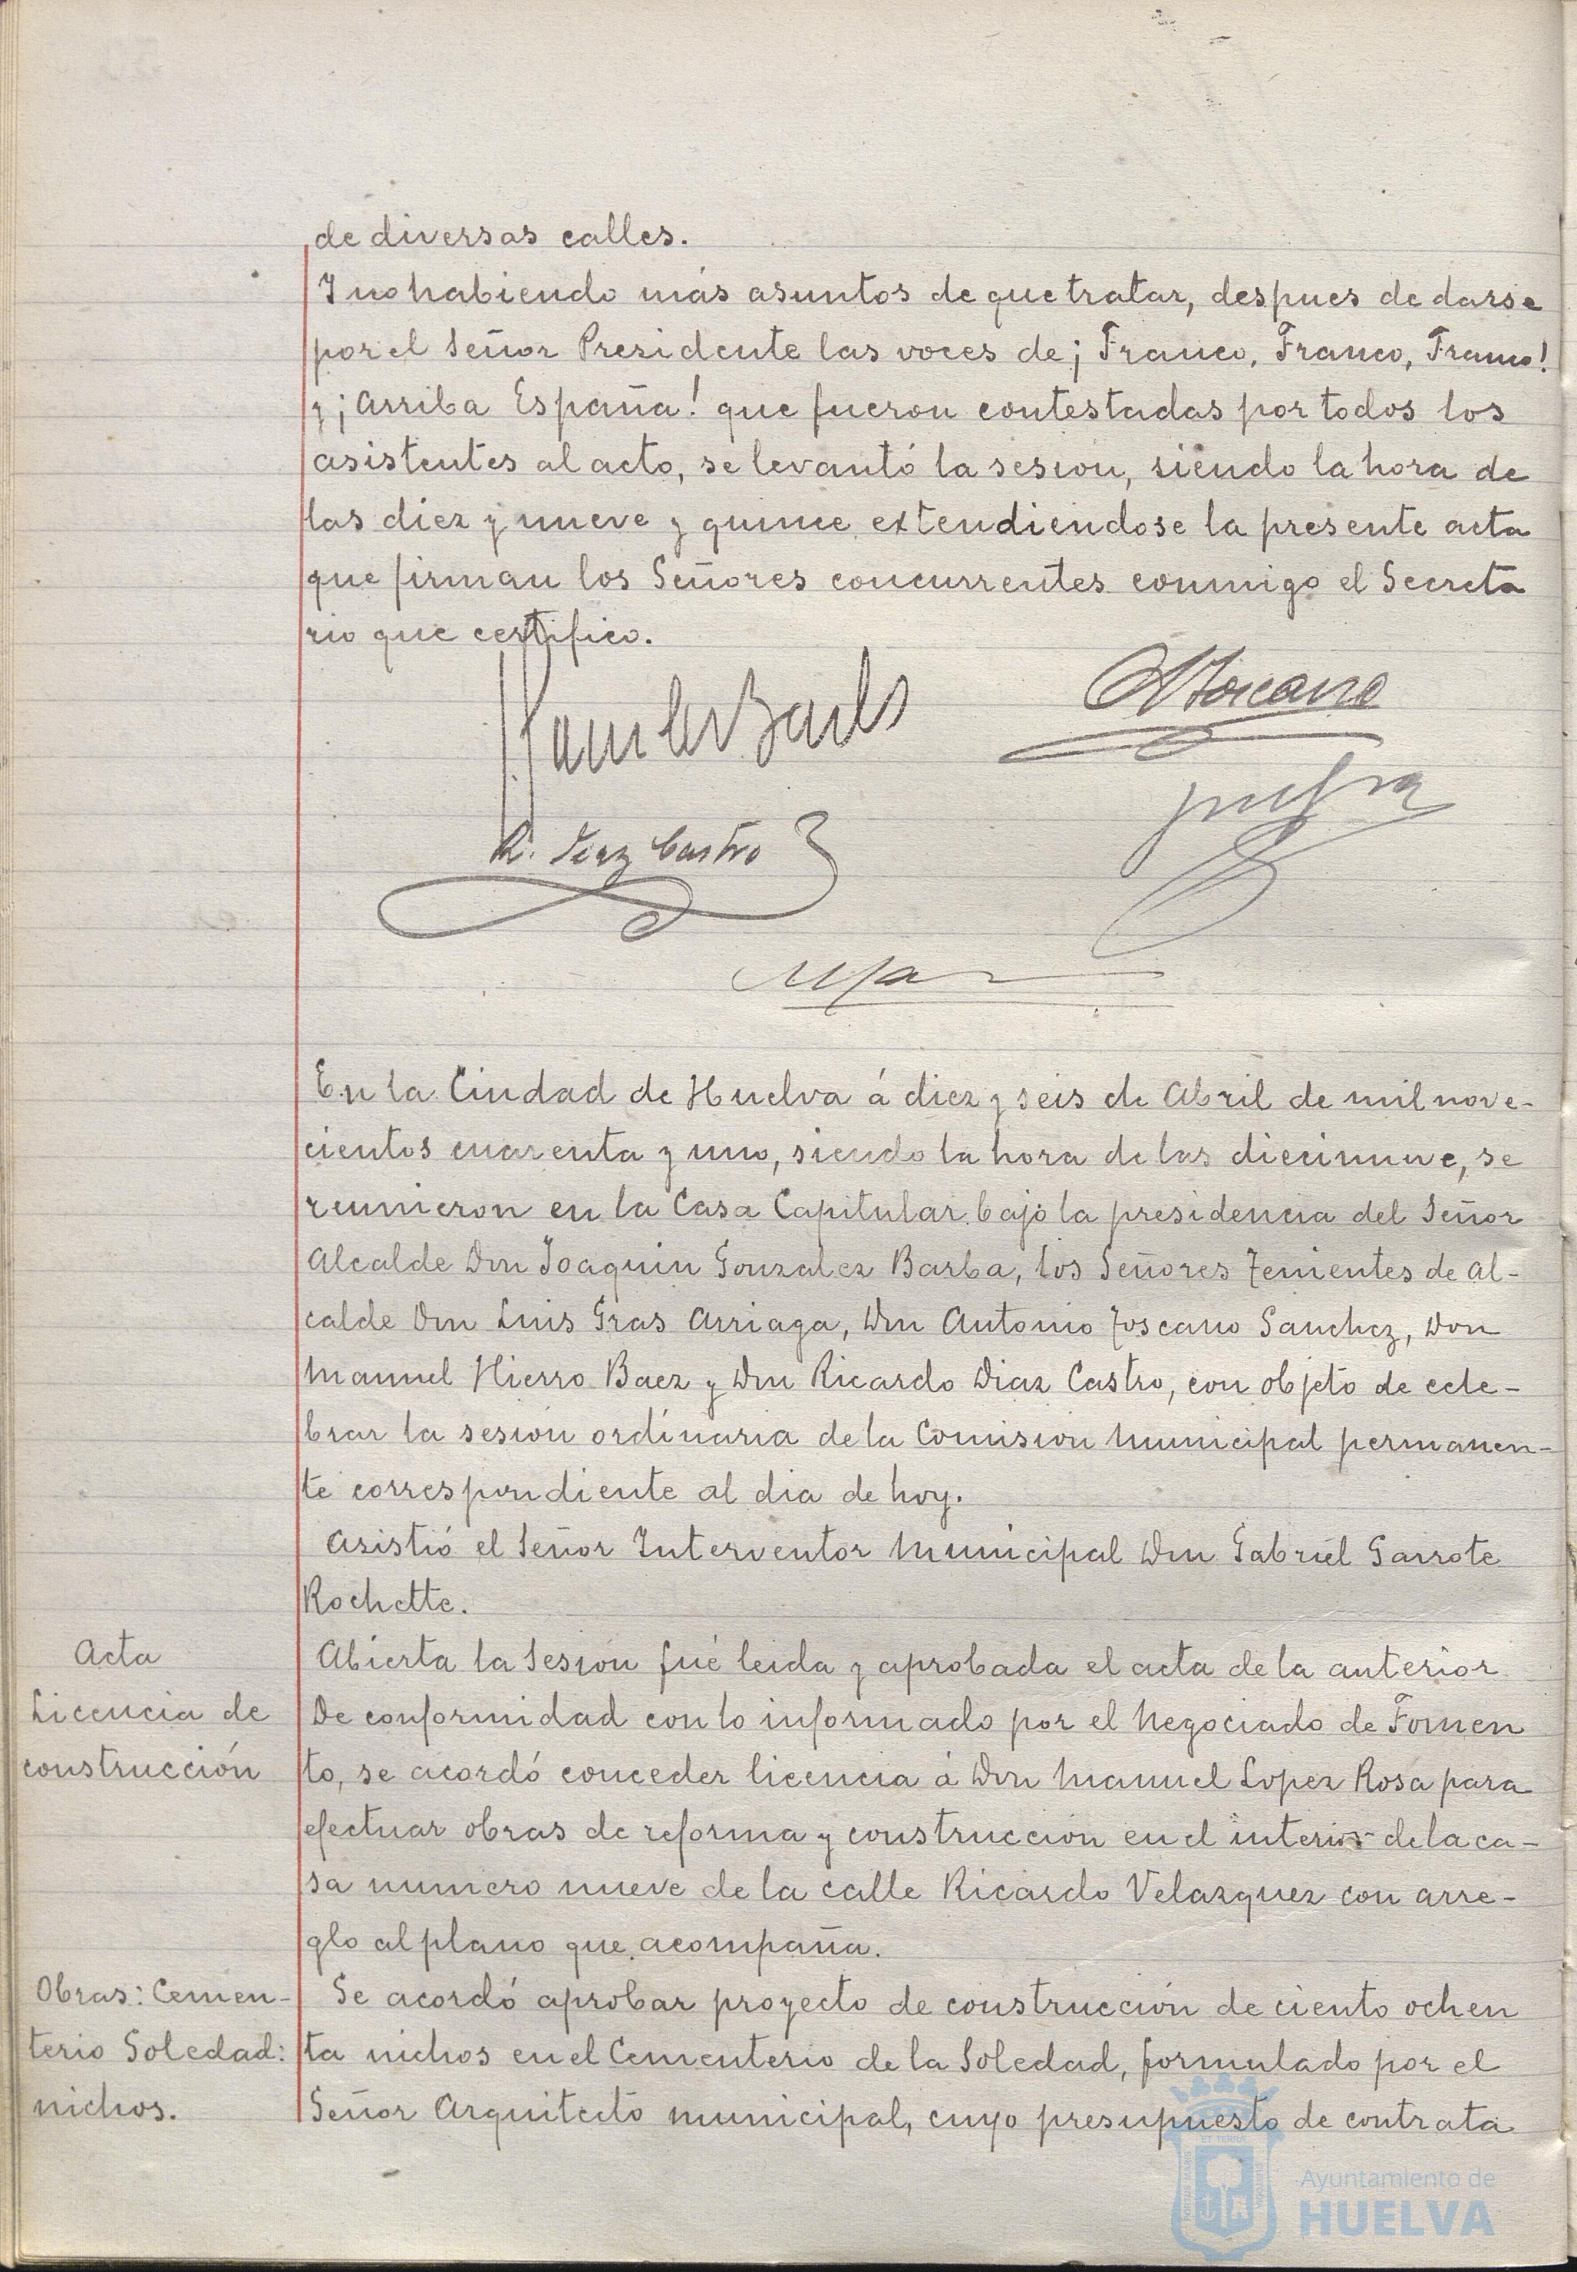 de diversas calles.
Y no habiendo más asuntos de que tratar, despues de darse
por el Señor Presidente las voces de ¡Franco, Franco, Franco!
y ¡Arriba España! que fueron contestadas por todos los
asistentes al acto, se levantó la sesion, siendo la hora de
las diez y nueve y quince extendiendose la presente acta
que firman los Señores concurrentes conmigo el Secreta
rio que certifico.
A Toscano
R. Diaz Castro
En la Ciudad de Huelva á diez y seis de Abril de mil nove-
cientos cuarenta y uno, siendo la hora de las diecinueve, se
reunieron en la Casa Capitular bajo la presidencia del Señor
Alcalde Don Joaquin Gonzalez Barba, los Señores Tenientes de Al-
calde Don Luis Gras Arriaga, Don Antonio Toscano Sanchez, Don
Manuel Hierro Baez y Don Ricardo Diaz Castro, con objeto de cele-
brar la sesion ordinaria de la Comision Municipal permanen-
te correspondiente al dia de hoy.
Asistió el Señor Interventor Municipal Don Gabriel Garrote
Rochette.
Acta
Abierta la Sesion fué leida y aprobada el acta de la anterior.
Licencia de
construcción
De conformidad con lo informado por el Negociado de Fomen
to, se acordó conceder licencia á Don Manuel Lopez Rosa para
efectuar obras de reforma y construccion en el interior de la ca-
sa numero nueve de la calle Ricardo Velazquez con arre-
glo al plano que acompaña.
Obras: Cemen-
terio Soledad:
nichos.
Se acordó aprobar proyecto de construcción de ciento ochen
ta nichos en el Cementerio de la Soledad, formulado por el
Señor Arquitecto municipal, cuyo presupuesto de contrata
Ayuntamiento de
HUELVA